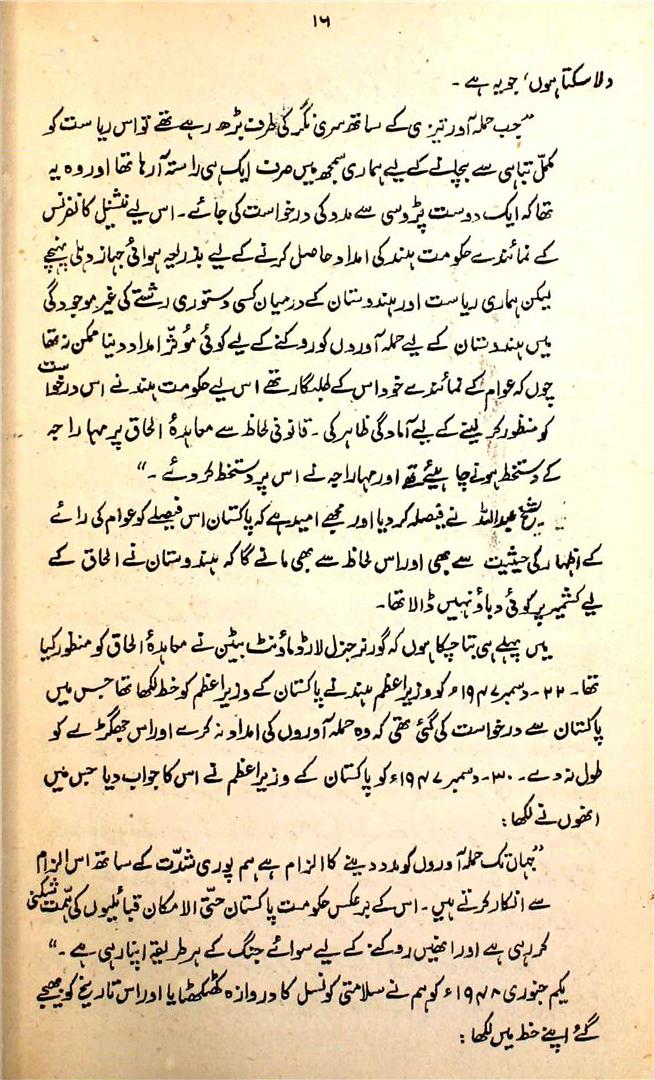 ۱۶
دلا سکتا ہوں، جو یہ ہے۔
”جب حملہ آور تیزی کے ساتھ سری نگر کی طرف بڑھ رہے تھے تو اس ریاست کو
مکمل تباہی سے بچانے کے لیے ہماری سمجھ میں صرف ایک ہی راستہ آرہا تھا اور وہ یہ
تھا کہ ایک دوست پڑوسی سے مدد کی درخواست کی جائے۔ اس لیے نیشنل کانفرنس
کے نمائندے حکومت ہند کی امداد حاصل کرنے کے لیے بذریعہ ہوائی جہاز دہلی پہنچے
لیکن ہماری ریاست اور ہندوستان کے درمیان کسی دستوری رشتے کی غیر موجودگی
میں ہندوستان کے لیے حملہ آوروں کو روکنے کے لیے کوئی مؤثر امداد دینا ممکن نہ تھا
چوں کہ عوام کے نمائندے خود اس کے طلبگار تھے اس لیے حکومت ہند نے اس درخواست
کو منظور کر لینے کے لیے آمادگی ظاہر کی۔ قانونی لحاظ سے معاہدۂ الحاق پر مہاراجہ
کے دستخط ہونے چاہیئے تھے اور مہاراجہ نے اس پر دستخط کر دئے۔“
یہ شیخ عبداللہ نے فیصلہ کر دیا اور مجھے امید ہے کہ پاکستان اس فیصلے کو عوام کی رائے
کے اظہار کی حیثیت سے بھی اور اس لحاظ سے بھی مانے گا کہ ہندوستان نے الحاق کے
لیے کشمیر پر کوئی دباؤ نہیں ڈالا تھا۔
میں پہلے ہی بتا چکا ہوں کہ گورنر جنرل لارڈ ماؤنٹ بیٹن نے معاہدۂ الحاق کو منظور کیا
تھا۔ ۲۲۔ دسمبر ۱۹۴۷ء کو وزیر اعظم ہند نے پاکستان کے وزیر اعظم کو خط لکھا تھا جس میں
پاکستان سے درخواست کی گئی تھی کہ وہ حملہ آوروں کی امداد نہ کرے اور اس جھگڑے کو
طول نہ دے۔ ۳۰۔ دسمبر ۱۹۴۷ء کو پاکستان کے وزیر اعظم نے اس کا جواب دیا جس میں
انھوں نے لکھا:
”جہاں تک حملہ آوروں کو مدد دینے کا الزام ہے ہم پوری شدّت کے ساتھ اس الزام
سے انکار کرتے ہیں۔ اس کے برعکس حکومت پاکستان حتّی الامکان قبائلیوں کی ہمّت شکنی
کر رہی ہے اور انھیں روکنے کے لیے سوائے جنگ کے ہر طریقہ اپنا رہی ہے۔“
یکم جنوری ۱۹۴۸ء کو ہم نے سلامتی کونسل کا دروازہ کھٹکھٹایا اور اس تاریخ کو بھیجے
گئے اپنے خط میں لکھا: